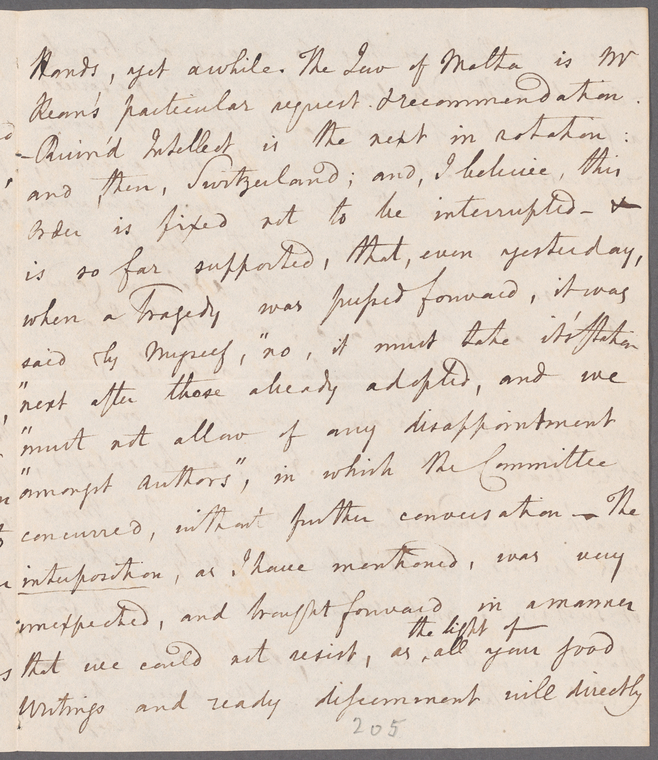 Hands, yet awhile. The Jew of Malta is Mr
Kean's particular request & recommendation.
- Ruin'd Intellect is the next in rotation:
and, then, Switzerland; and, I believe, this
order is fixed not to be interrupted - &
is so far supported, that, even yesterday,
when a Tragedy was pushed forward, it was
said by myself, "no, it must take it's station
"next after those already adopted, and we
"must not allow of any disappointment
"amongst authors", in which the Committee
concurred, without further conversation - The
interposition, as I have mentioned, was very
unexpected, and brought forward in a manner
the light of
that we could not resist, as all your good
Writings and ready discernment will directly
205